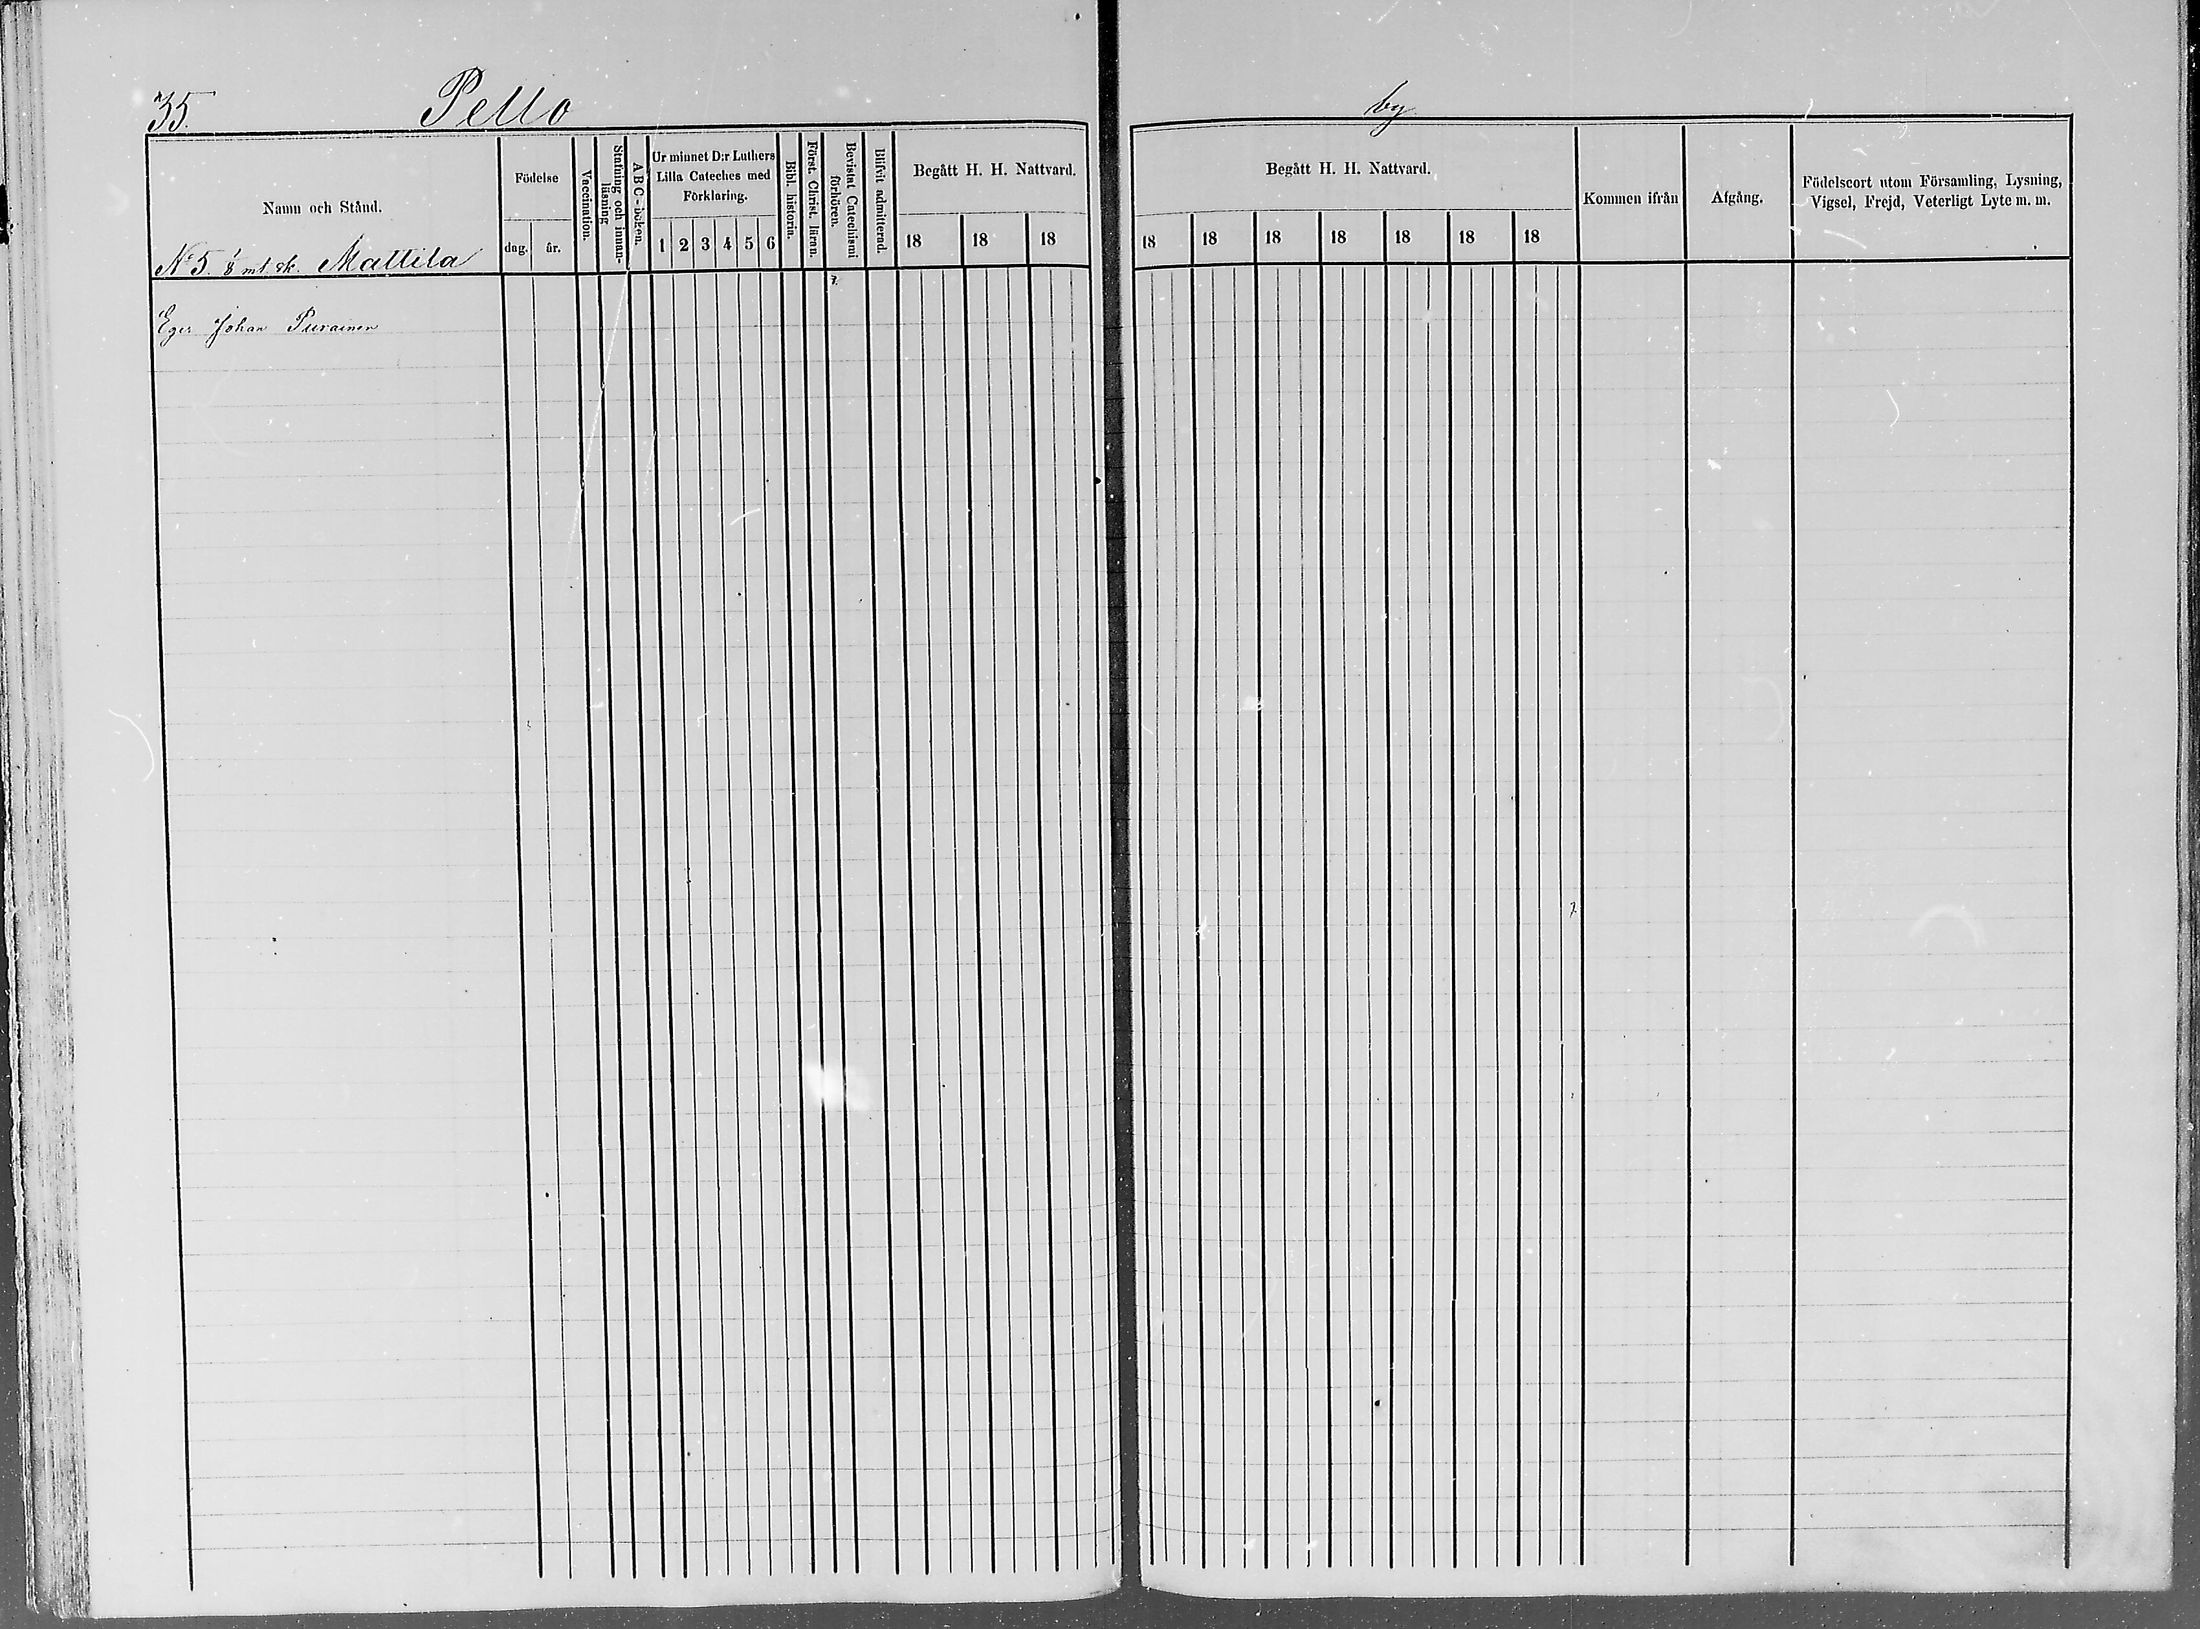 35.
Pello
by
Namn och Stånd.
Födelse
dag.
år.
Vaccination.
Stafning och innan-
läsning
A B C-boken.
Ur minnet D:r Luthers
Lilla Cateches med
Förklaring.
1 2 3 4 5 6
Bibl. historia.
Först. Christ. läran.
Bevistat Catechismi
förhören.
Blifvit admitterad.
Begått H. H. Nattvard.
18 18 18
Begått H. H. Nattvard.
18 18 18 18 18 18 18
Kommen ifrån
Afgång.
Födelseort utom Församling, Lysning,
Vigsel, Frejd, Veterligt Lyte m. m.
No 5. 1/8 mt. sk. Mattila
Eger Johan Purainen